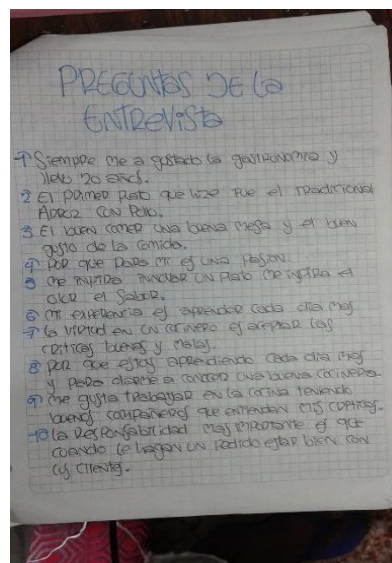 PREGUNTAS DE LA
ENTREVISTA
1 Siempre me a gustado la gastronomia y
llevo 20 años.
2 El primer plato que hize fue el tradicional
Arroz con Pollo.
3 El buen comer una buena mesa y el buen
gusto de la comida.
4 Por que para mi es una pasion.
5 me inspira innovar un plato me inspira el
olor el sabor.
6 mi experiencia es aprender cada dia mas
7 la virtud en un cocinero es aceptar las
criticas buenas y malas.
8 Por que estoy aprendiendo cada dia mas
y para darme a conocer una buena cocinera.
9 me gusta trabajar en la cocina teniendo
buenos compañeros que entienden mis criticas.
10 la responsabilidad mas importante es que
cuando le hagan un pedido estar bien con
los clientes.